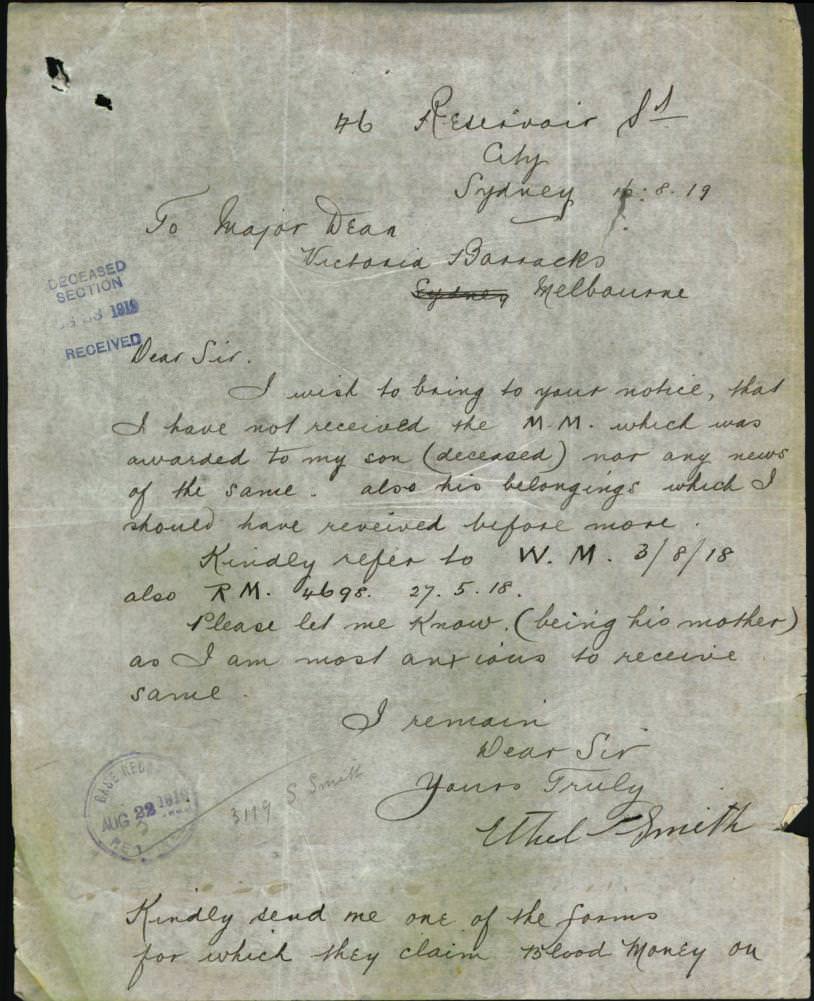 46 Reservoir St
City
Sydney 16.8.19
To Major Dean
Victoria Barracks
Sydney Melbourne
DECEASED
SECTION
1919
RECEIVED
Dear Sir.
I wish to bring to your notice, that
I have not received the M.M. which was
awarded to my son (deceased) nor any news
of the same. also his belongings which I
should have reveived before more.
Kindly refer to W.M. 3/8/18
also R.M. 4698. 27.5.18.
Please let me know. (being his mother)
as I am most anxious to receive
same.
I remain
Dear Sir
Yours Truly
Ethel Smith
BASE
AUG 22 1919
3119 S Smith
Kindly send me one of the forms
for which they claim Blood Money on